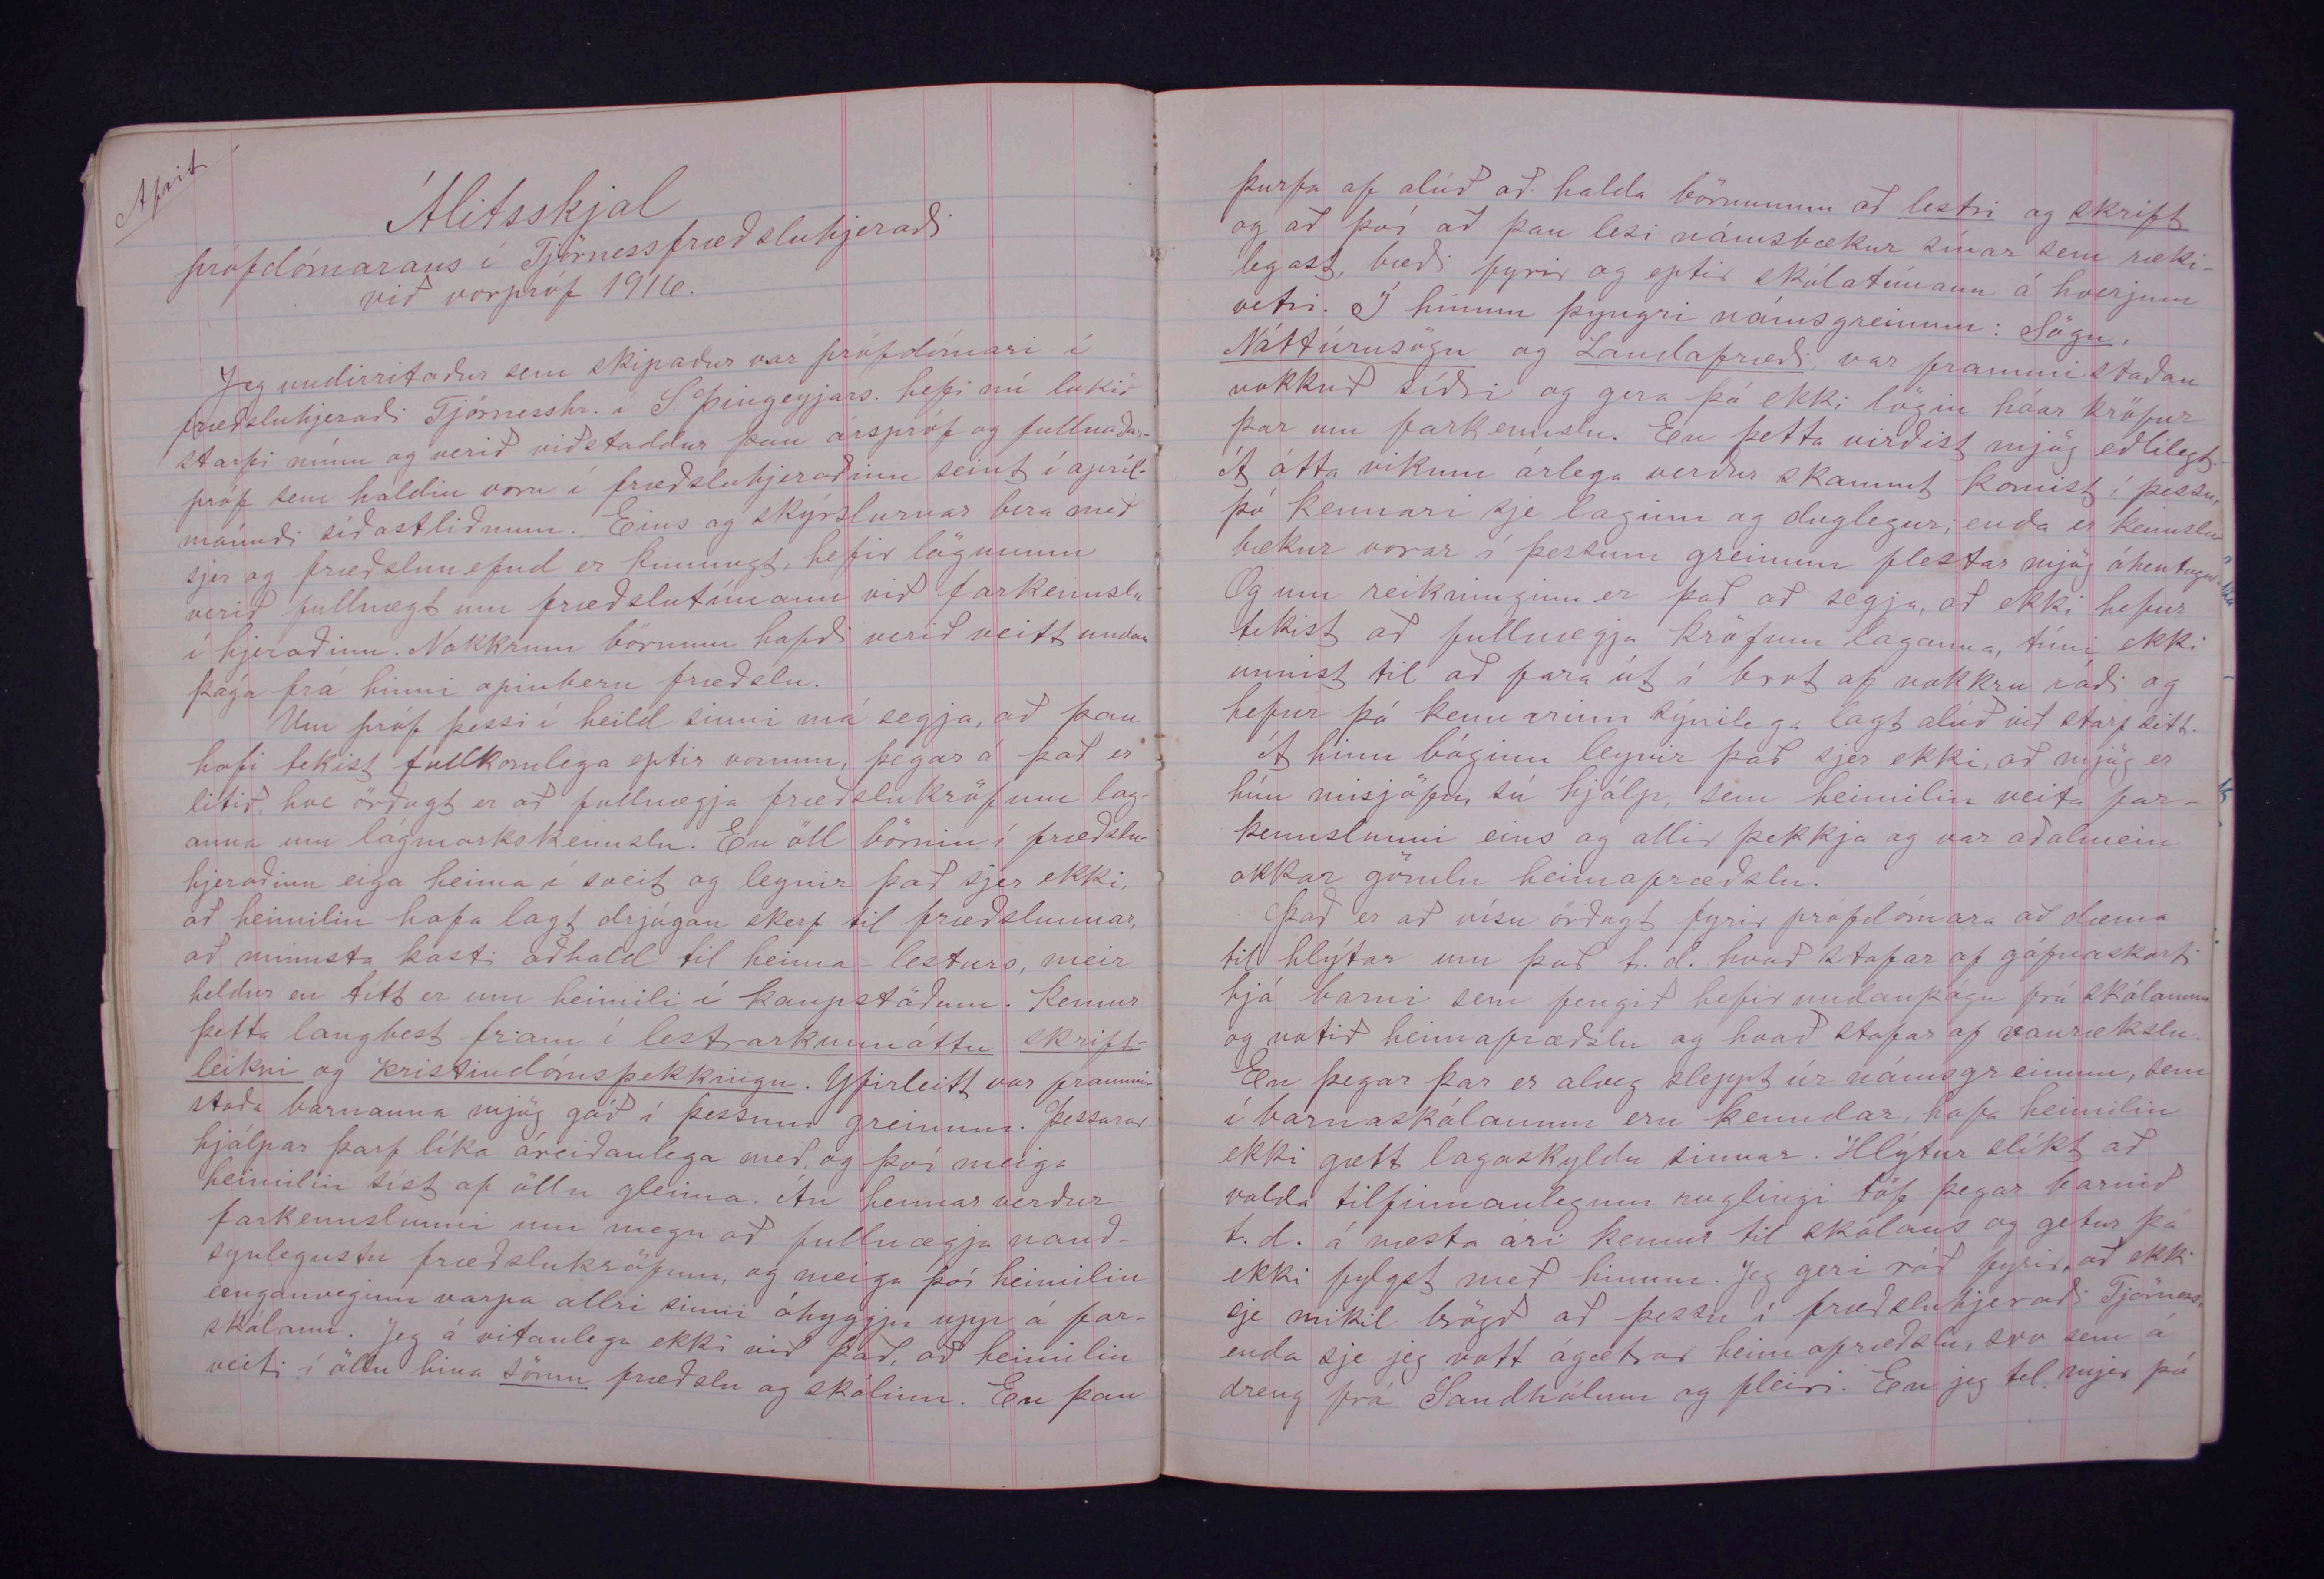 Afrit
Álitsskjal
prófdómarans í Tjörnessfræðsluhjeraði
við vorpróf 1916.
Jeg undirritaður sem skipaður var prófdómari í
fræðsluhjeraði Tjörnesshr. í S. Þingeyjars. hefi nú lokið
starfi mínu og verið viðstaddur þau árspróf og fullnaðar-
próf sem haldin voru í fræðsluhjeraðinu seint í apríl-
mánuði síðastliðnum. Eins og skýrslurnar bera með
sjer og fræðslunefnd er kunnugt, hefir lögunum
verið fullnægt um fræðslutímann við farkennslu
í hjeraðinu. Nokkrum börnum hafði verið veitt undan
þága frá hinni opinberu fræðslu.
Um próf þessi í heild sinni má segja, að þau
hafi tekist fullkomlega eptir vonum, þegar á það er
litið, hve örðugt er að fullnægja fræðslukröfum lag-
anna um lágmarkskennslu. En öll börnin í fræðslu-
hjeraðinu eiga heima í sveit og leynir það sjer ekki,
að heimilin hafa lagt drjúgan skerf til fræðslunnar,
að minnsta kosti aðhald til heima-lesturs, meir
heldur en títt er um heimili í kaupstöðum. Kemur
þetta langbest fram í lestrarkunnáttu skrift-
leikni og kristindómsþekkingu. Yfirleitt var frammi-
staða barnanna mjög góð í þessum greinum. Þessarar
hjálpar þarf líka áreiðanlega með, og því meiga
heimilin síst af öllu gleima. Án hennar verður
farkennslunni um megn að fullnægja nauð-
synlegustu fræðslukröfum, og meiga því heimilin
eenganveginn varpa allri sinni áhyggju upp á far-
skólann. Jeg á vitanlega ekki við það, að heimilin
veiti í öllu hina sömu fræðslu og skólinn. En þau
þurfa af alúð að halda börnunum að lestri og skrift
og að því að þau lesi námsbækur sínar sem ræki-
legast, bæði fyrir og eptir skólatímann á hverjum
vetri. Í hinum þyngri námsgreinum: Sögu,
Náttúrusögu og Landafræði, var frammistaðan
nokkuð síðri og gera þó ekki lögin háar kröfur
þar um farkennslu. En þetta virðist mjög eðlilegt.
Á átta vikum árlega verður skammt komist í þessu,
þó kennari sje laginn og duglegur; enda er kennslu
bækur vorar í þessum greinum flestar mjög óhentugar.
Og um reikninginn er það að segja, að ekki hefur
tekist að fullnægja kröfum laganna, tími ekki
unnist til að fara út í brot af nokkru ráði og
hefur þó kennarinn sýnilega lagt alúð við starf sitt.
Á hinn bóginn leynir það sjer ekki, að mjög er
hún misjöfn, sú hjálp, sem heimilin veita far-
kennslunni eins og allir þekkja og var aðalmein
okkar gömlu heimafræðslu.
Það er að vísu örðugt fyrir prófdómara að dæma
til hlýtar um það t. d. hvað stafar af gáfnaskorti
hjá barni sem fengið hefir undanþágu frá skólanum
og notið heimafræðslu og hvað stafar af vanrækslu.
En þegar þar er alveg sleppt úr námsgreinum, sem
í barnaskólanum eru kenndar, hafa heimilin
ekki gætt lagaskyldu sinnar. Hlýtur slíkt að
valda tilfinnanlegum ruglingi töf þegar barnið
t. d. á næsta ári kemur til skólans og getur þá
ekki fylgst með hinum. Jeg geri ráð fyrir, að ekki
sje mikil brögð að þessu í fræðsluhjeraði Tjörness,
enda sje jeg vott ágætrar heimafræðslu, svo sem á
dreng frá Sandhólum og fleiri. En jeg tel mjer þó